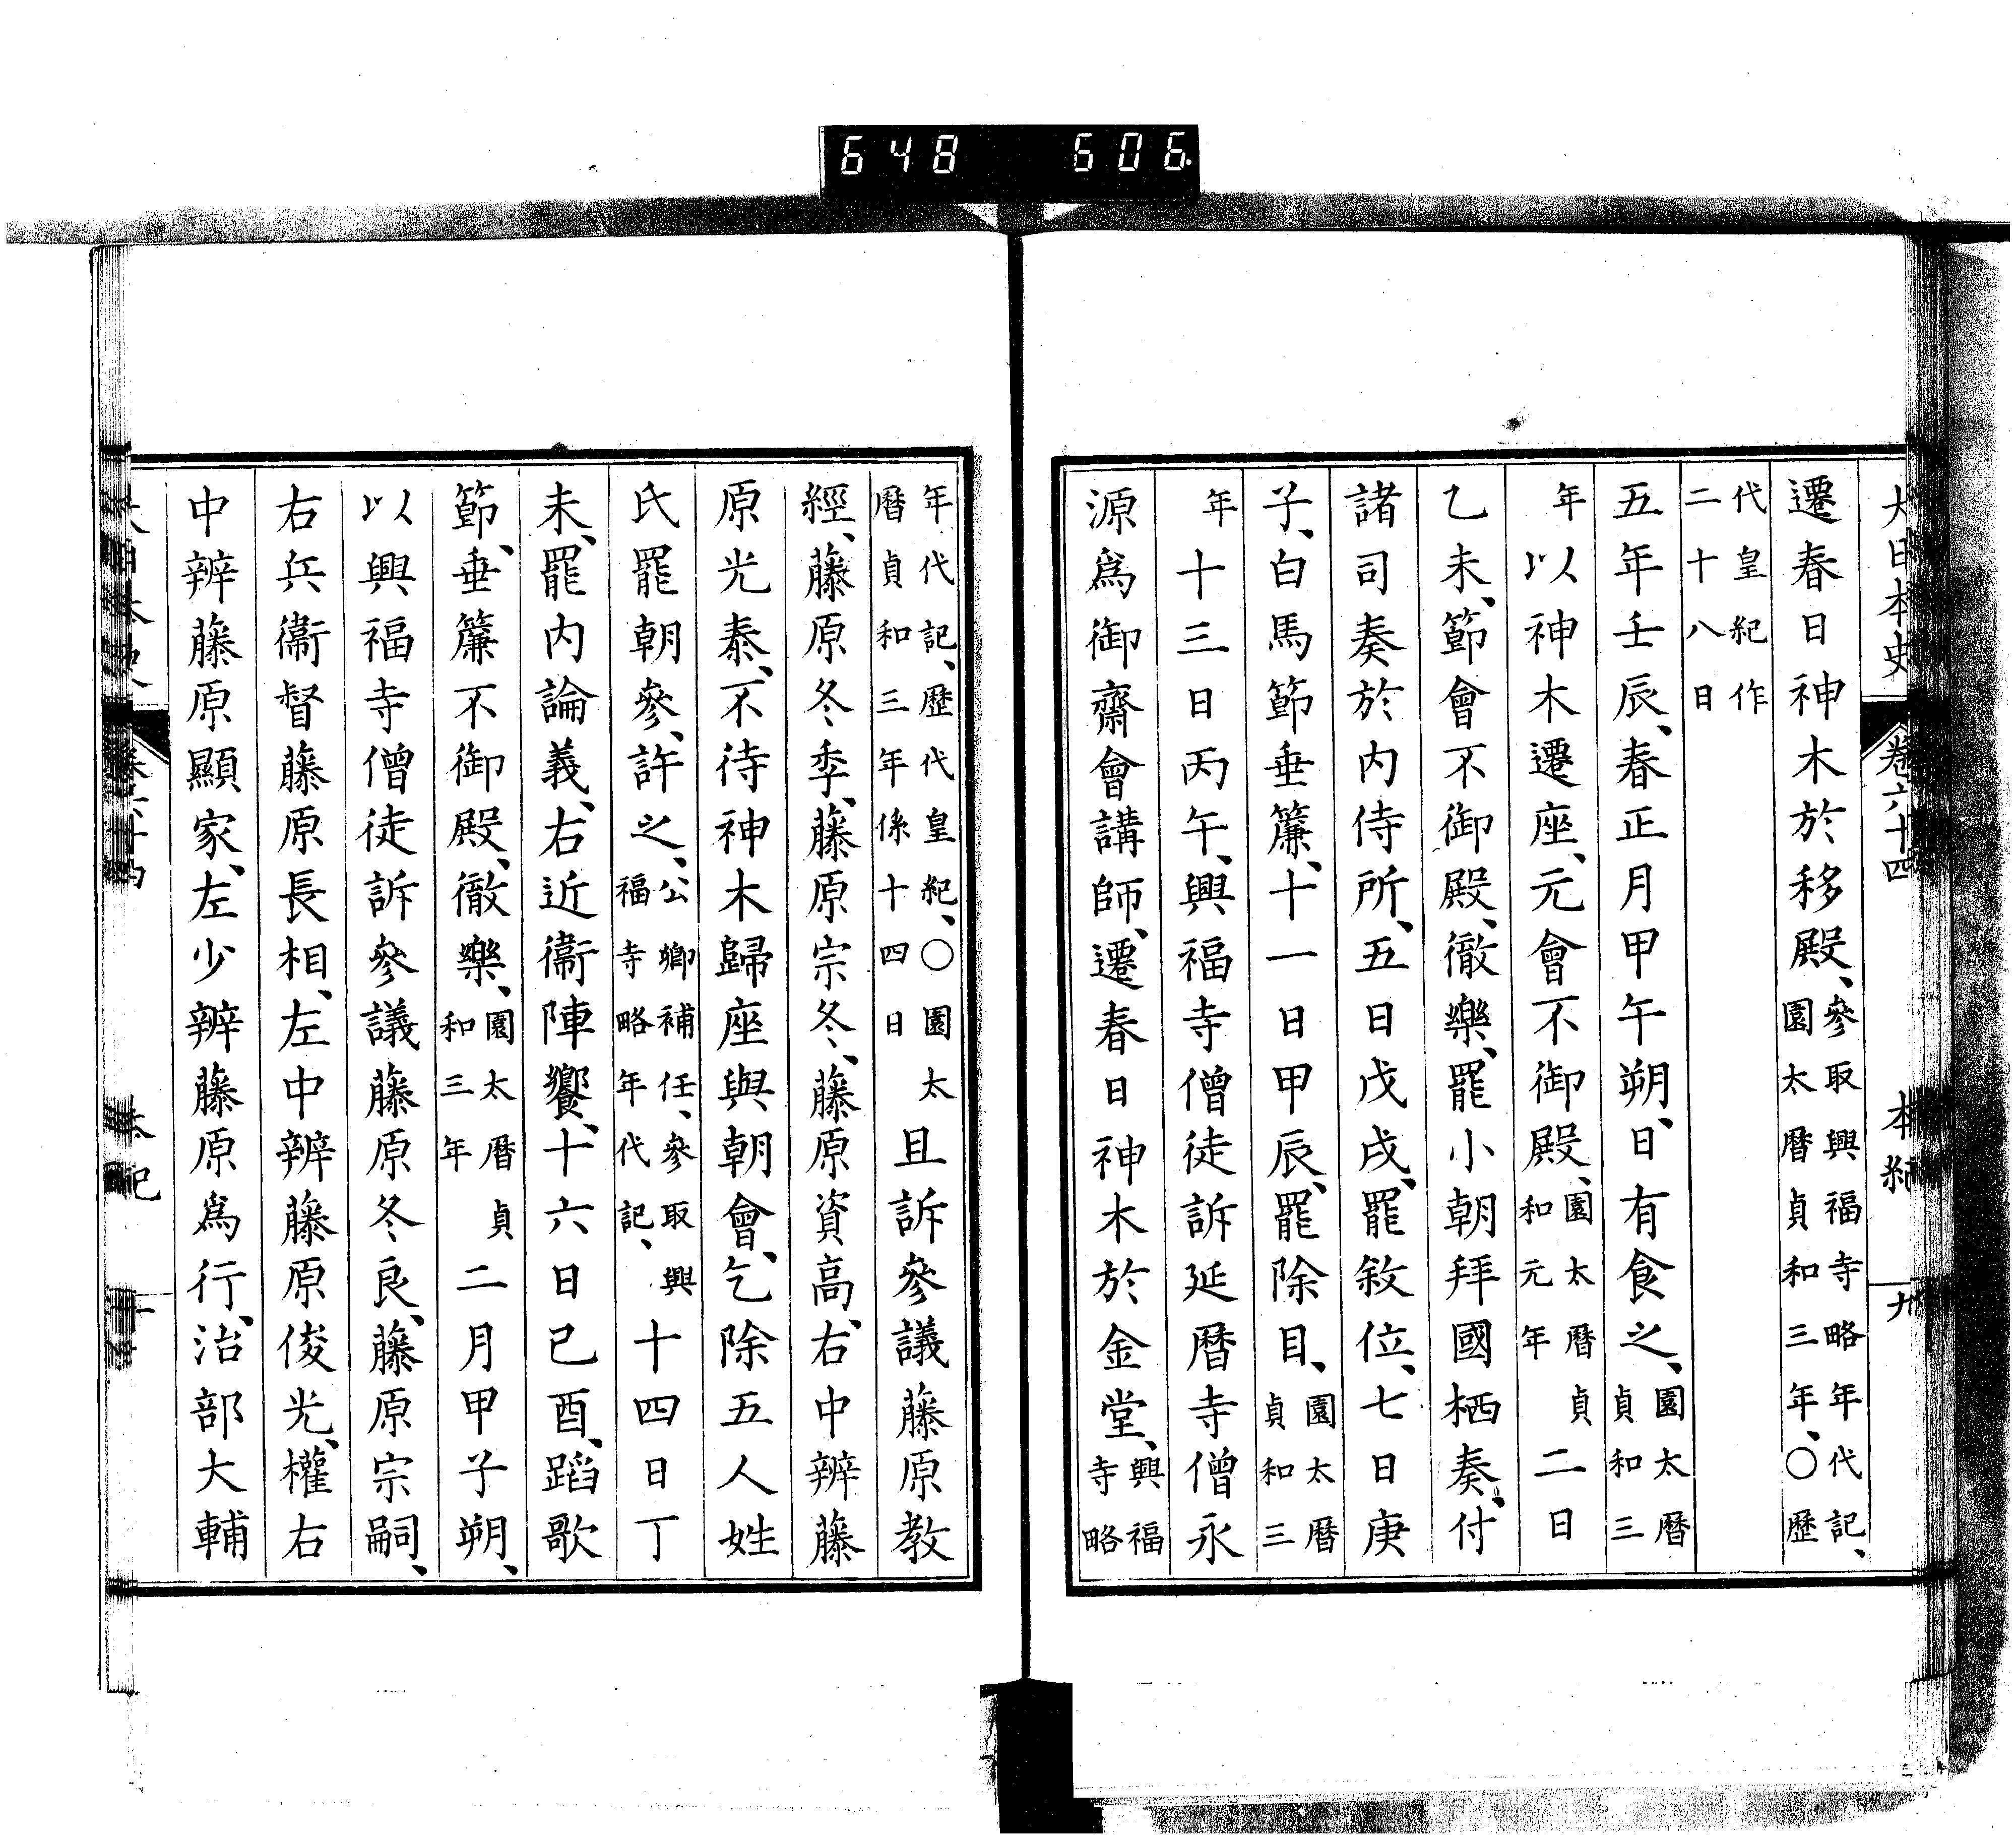 648 606.
大日本史 卷六十四 本紀 九
遷春日神木於移殿、參取興福寺略年代記、園太曆貞和三年、〇歷
代皇紀作二十八日
五年壬辰、春正月甲午朔、日有食之、園太曆貞和三
年以神木遷座、元會不御殿、園太曆貞和元年二日
乙未、節會不御殿、徹樂、罷小朝拜國栖奏、付
諸司奏於內侍所、五日戊戌、罷敘位、七日庚
子、白馬節垂簾、十一日甲辰、罷除目、園太曆貞和三
年十三日丙午、興福寺僧徒訴延曆寺僧永
源爲御齋會講師、遷春日神木於金堂、興福寺略
年代記、歷代皇紀、〇園太曆貞和三年係十四日且訴參議藤原教
經、藤原冬季、藤原宗冬、藤原資高、右中辨藤
原光泰、不待神木歸座與朝會、乞除五人姓
氏罷朝參、許之、公卿補任、參取興福寺略年代記、十四日丁
未、罷內論義、右近衞陣饗、十六日己酉、蹈歌
節、垂簾不御殿、徹樂、園太曆貞和三年二月甲子朔、
以興福寺僧徒訴參議藤原冬良、藤原宗嗣、
右兵衞督藤原長相、左中辨藤原俊光、權右
中辨藤原顯家、左少辨藤原爲行、治部大輔